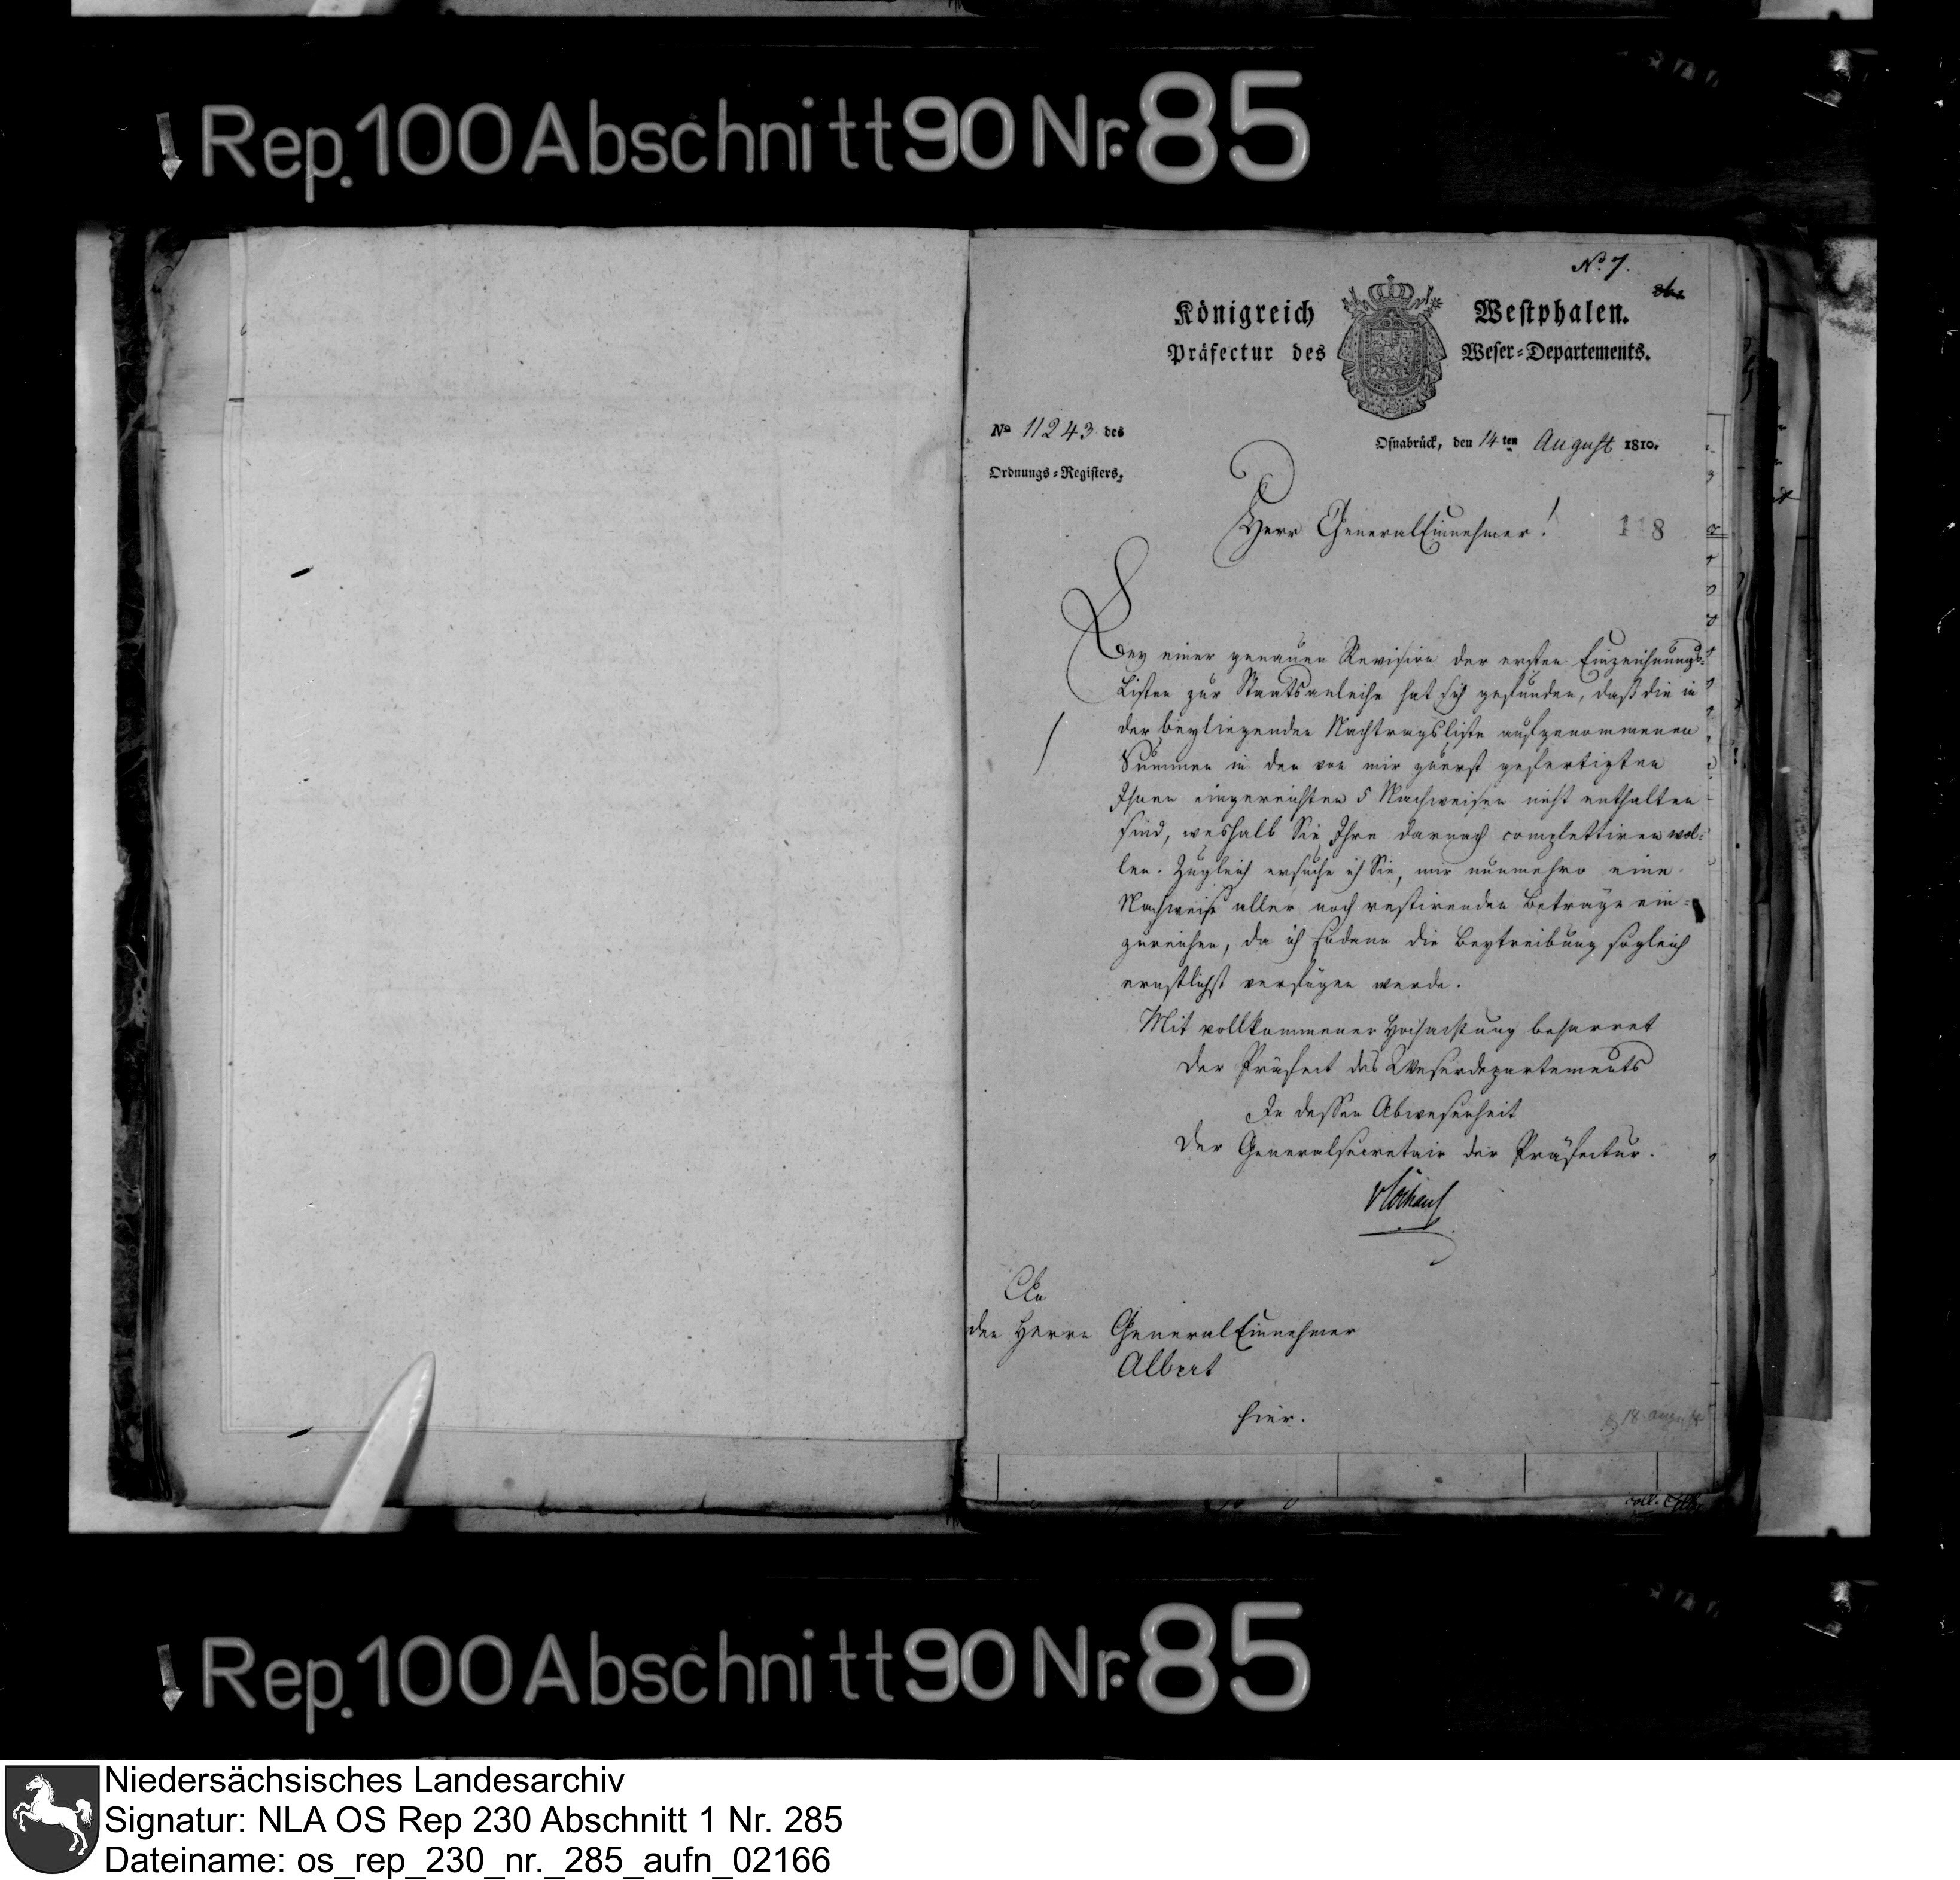 Rep. 100 Abschnitt 90 Nr. 85
No. 7.
Königreich Westphalen.
Präfectur des Weser-Departements.
No 11243 des
Ordnungs-Registers.
Osnabrück, den 14ten August 1810.
Herr GeneralEinnehmer!
118
Bey einer genauen Revision der ersten Einzeichnungs-
Listen zur Staatsanleihe hat sich gefunden, daß die in
der beyliegenden Nachtragsliste aufgenommenen
Summen in den von mir zuerst gefertigten
Ihnen eingereichten 5 Nachweisen nicht enthalten
sind, weshalb Sie Ihre darnach complettiren wol-
len. Zugleich ersuche ich Sie, mir nunmehro eine
Nachweise aller noch restirenden Beträge ein-
zureichen, da ich sodann die Beytreibung sogleich
ernstlichst verfügen werde.
Mit vollkommener Hochachtung beharret
Der Präfect des Weserdepartements
In dessen Abwesenheit
Der Generalsecretair der Präfectur.
An
den Herrn GeneralEinnehmer
Albert
hier.
18 august
Rep. 100 Abschnitt 90 Nr. 85
Niedersächsisches Landesarchiv
Signatur: NLA OS Rep 230 Abschnitt 1 Nr. 285
Dateiname: os_rep_230_nr._285_aufn_02166